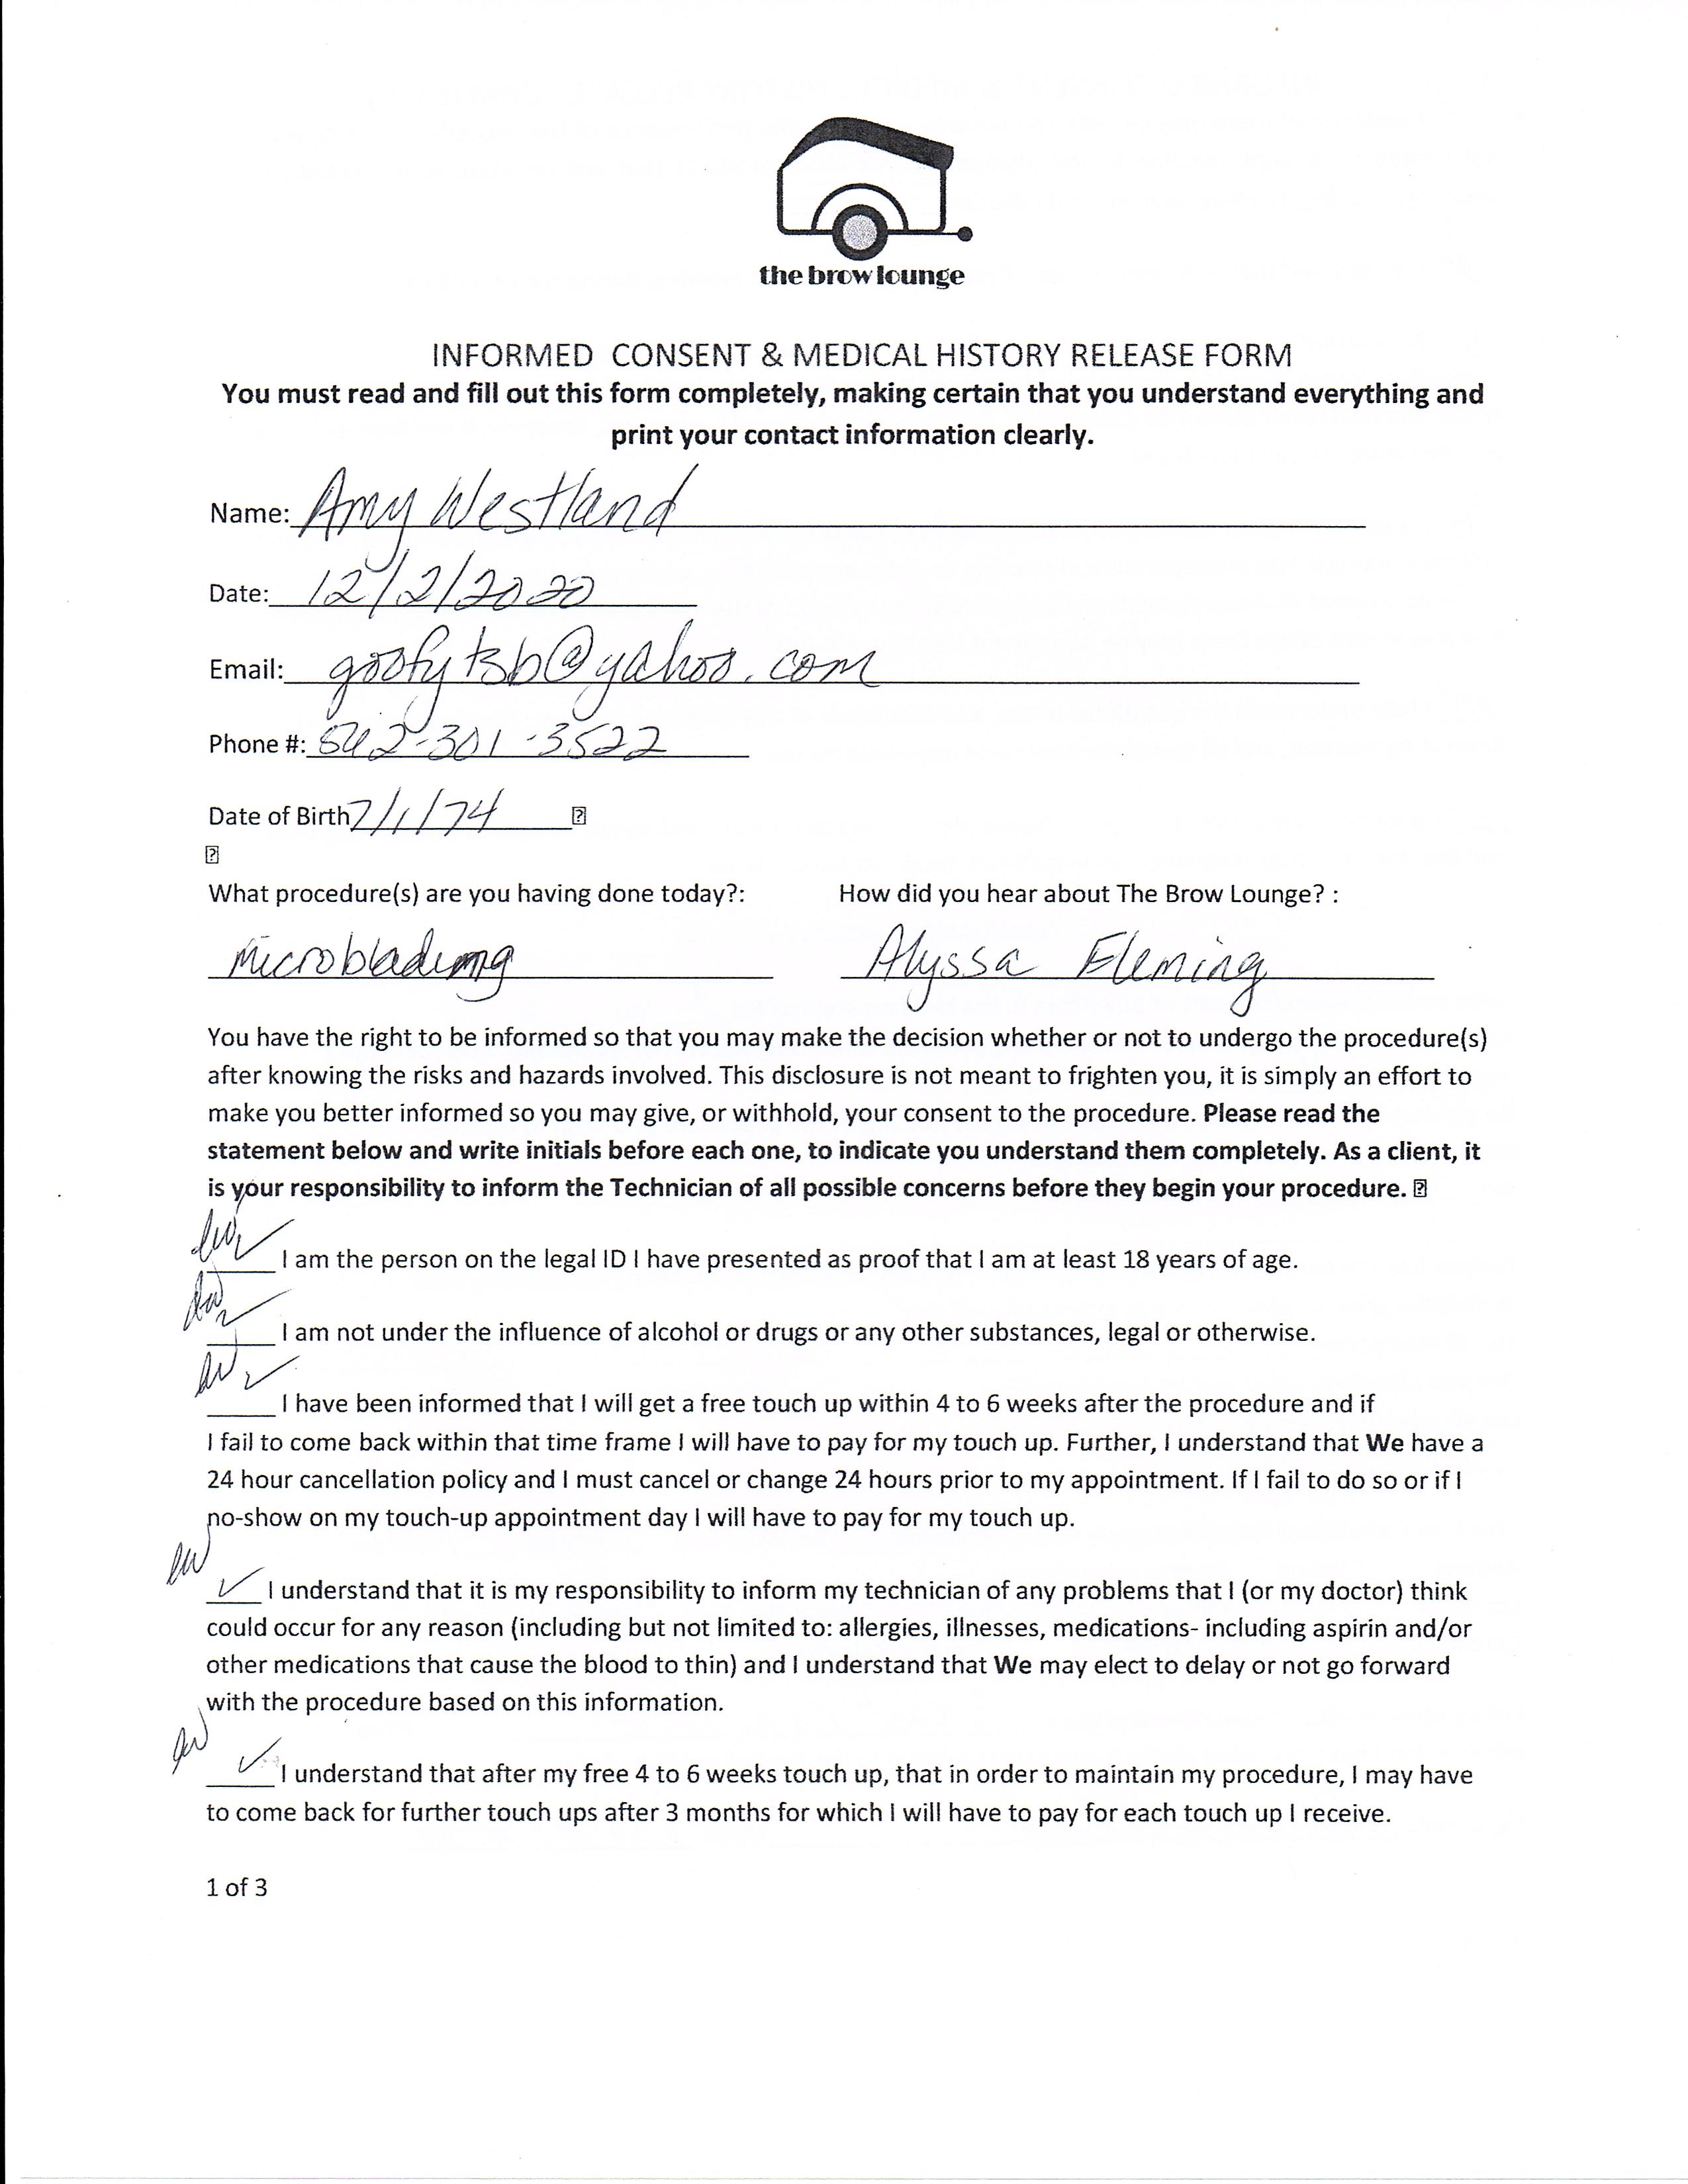 the brow lounge
INFORMED CONSENT & MEDICAL HISTORY RELEASE FORM
You must read and fill out this form completely, making certain that you understand everything and
print your contact information clearly.
Name: Amy Westland
Date: 12/2/2020
Email: goofytsb@yahoo.com
Phone #: 562-301-3522
Date of Birth 7/1/74
What procedure(s) are you having done today?: How did you hear about The Brow Lounge? :
Microblading Alyssa Fleming
You have the right to be informed so that you may make the decision whether or not to undergo the procedure(s)
after knowing the risks and hazards involved. This disclosure is not meant to frighten you, it is simply an effort to
make you better informed so you may give, or withhold, your consent to the procedure. Please read the
statement below and write initials before each one, to indicate you understand them completely. As a client, it
is your responsibility to inform the Technician of all possible concerns before they begin your procedure.
aw ✓ I am the person on the legal ID I have presented as proof that I am at least 18 years of age.
aw ✓ I am not under the influence of alcohol or drugs or any other substances, legal or otherwise.
aw ✓ I have been informed that I will get a free touch up within 4 to 6 weeks after the procedure and if
I fail to come back within that time frame I will have to pay for my touch up. Further, I understand that We have a
24 hour cancellation policy and I must cancel or change 24 hours prior to my appointment. If I fail to do so or if I
no-show on my touch-up appointment day I will have to pay for my touch up.
aw ✓ I understand that it is my responsibility to inform my technician of any problems that I (or my doctor) think
could occur for any reason (including but not limited to: allergies, illnesses, medications- including aspirin and/or
other medications that cause the blood to thin) and I understand that We may elect to delay or not go forward
with the procedure based on this information.
aw ✓ I understand that after my free 4 to 6 weeks touch up, that in order to maintain my procedure, I may have
to come back for further touch ups after 3 months for which I will have to pay for each touch up I receive.
1 of 3